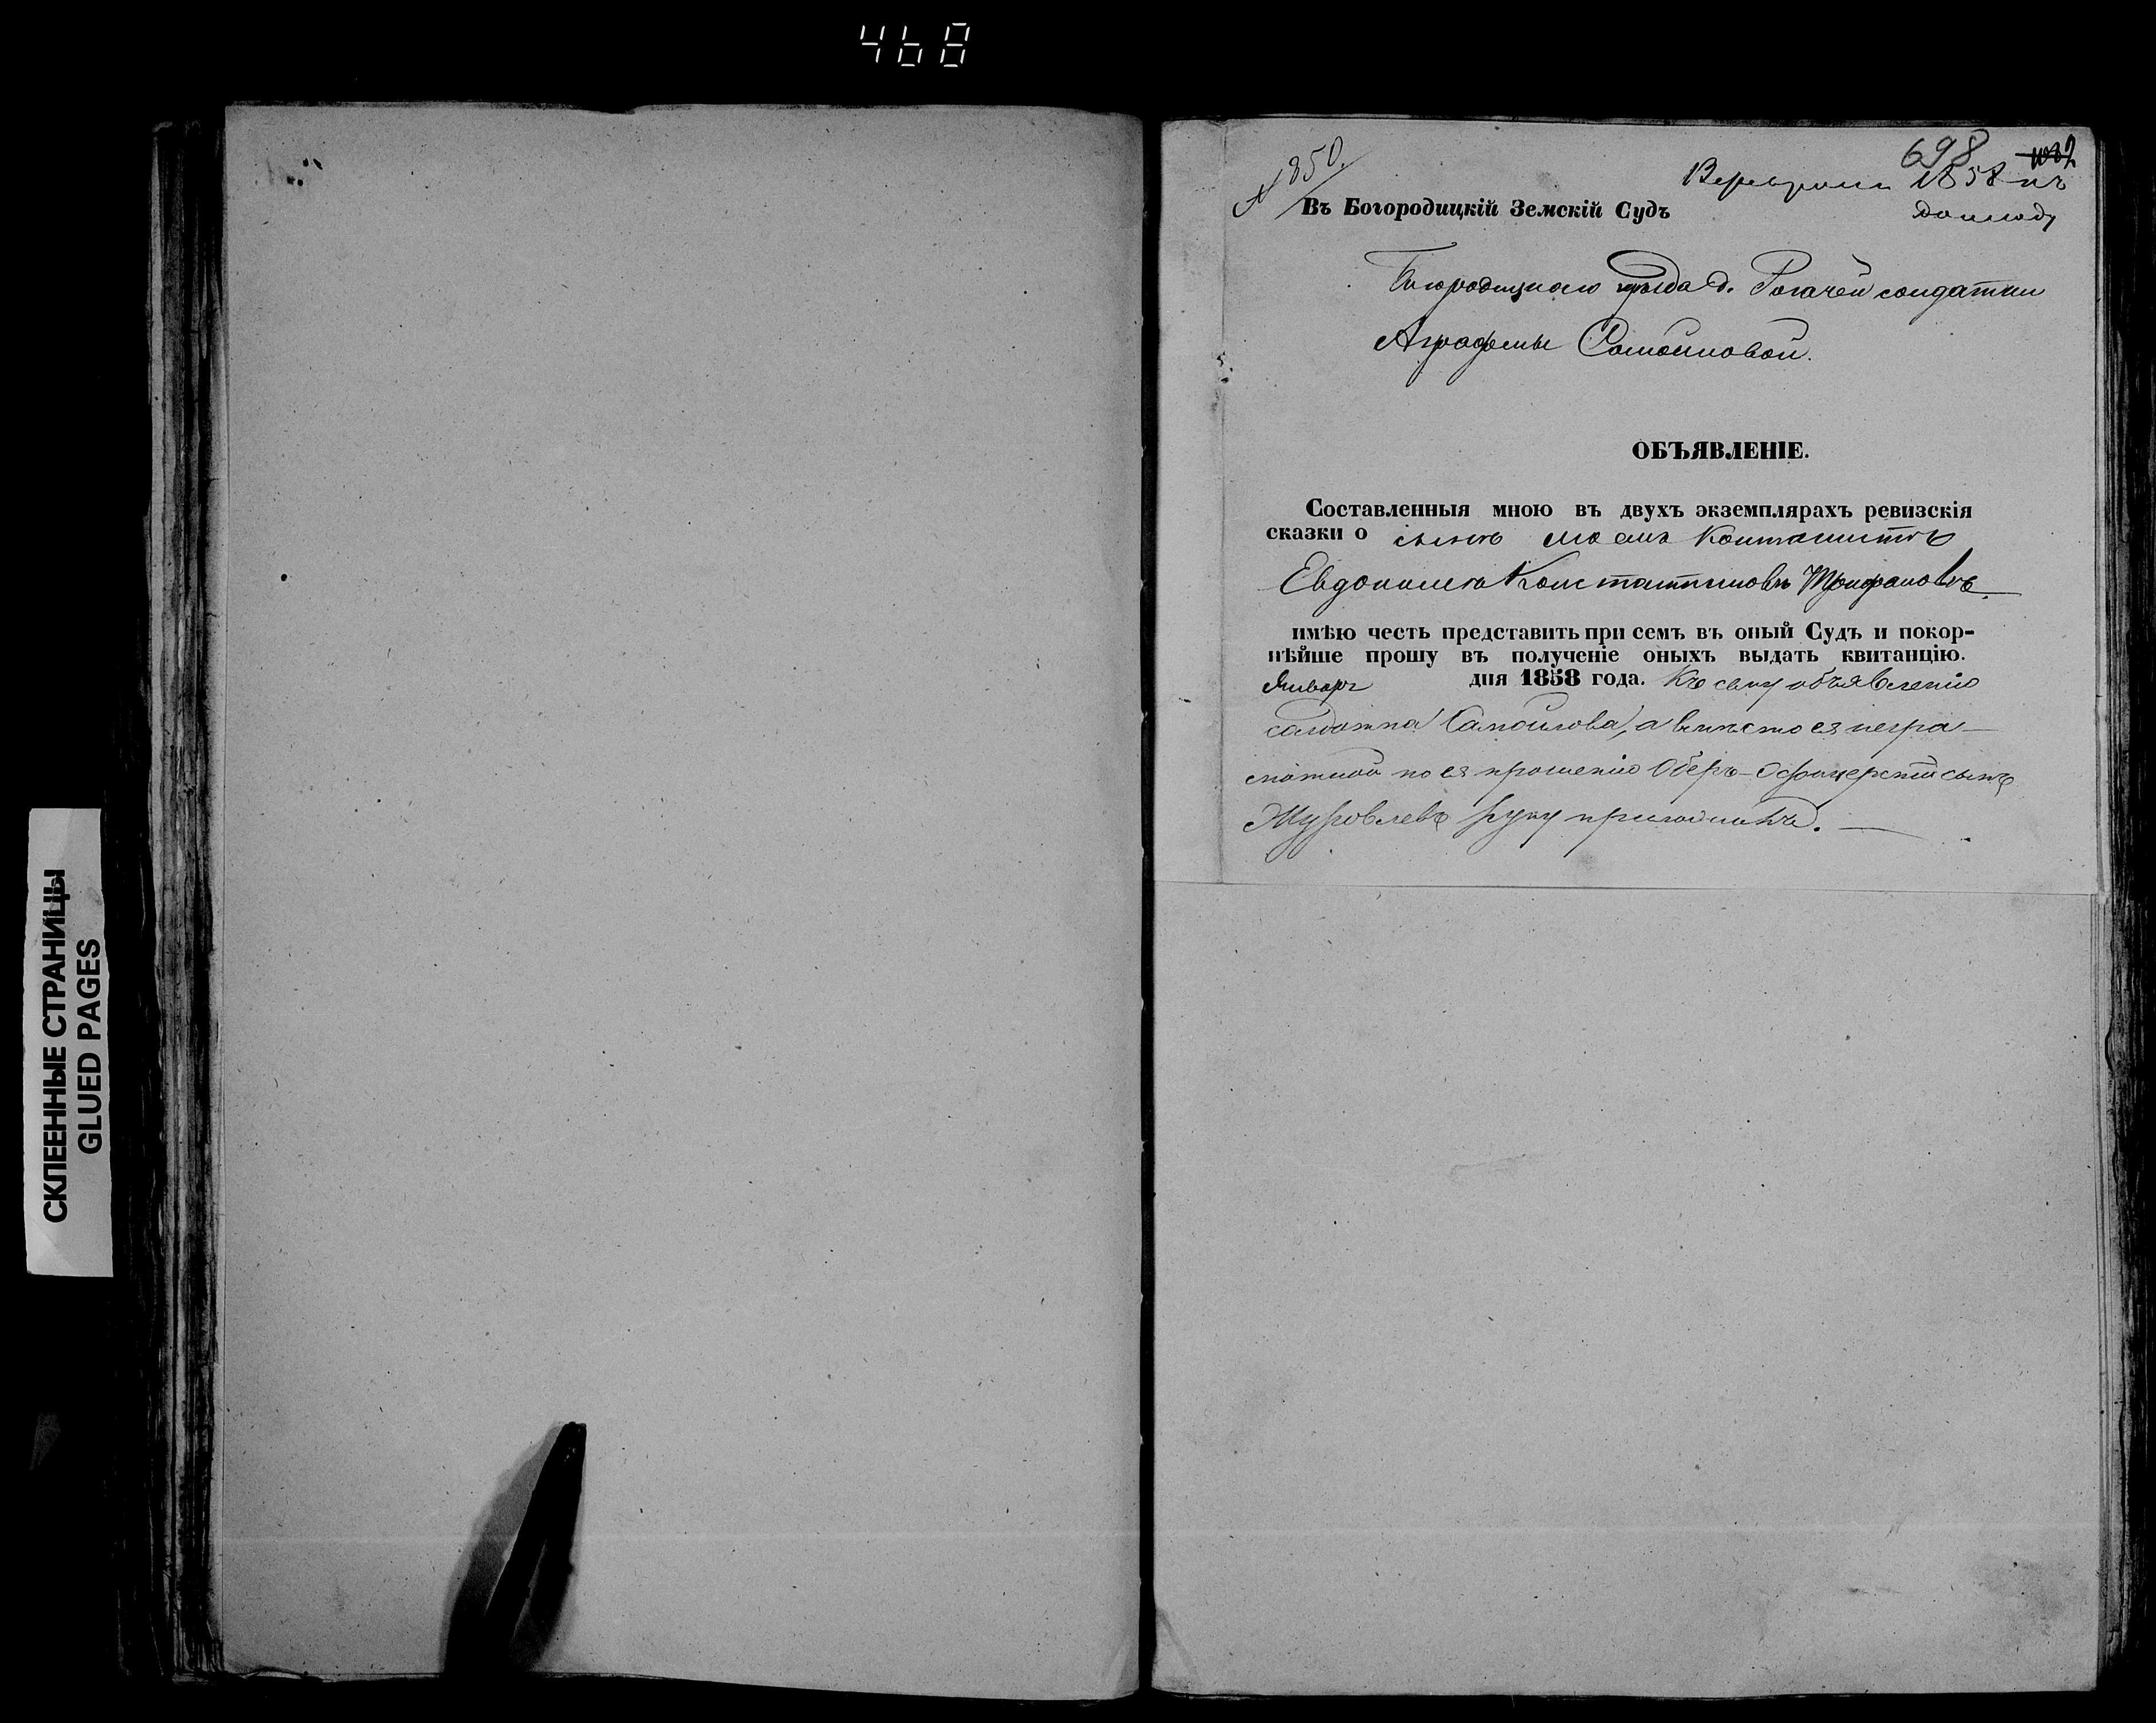 468
СКЛЕЕННЫЕ СТРАНИЦЫ
GLUED PAGES
698
1850.
1858
докладу
Въ Богородицкій Земскій Судъ
Богородицкаго уѣзда д. Рогачей солдатки
Аграфены Самойловой.
ОБЪЯВЛЕНІЕ.
Составленныя мною въ двухъ экземплярахъ ревизскія
сказки о сынѣ моемъ Кантонистѣ
Евдокимѣ Константиновѣ Трифановѣ
имѣю честь представить при семъ въ оный Судъ и покор-
нѣйше прошу въ полученіе оныхъ выдать квитанцію.
Январ дня 1858 года. Къ сему объявленію
солдатка Самойлова, а вмѣсто ея негра-
мотной по ея прошенію Оберъ-Офицерскій сынъ
Журовлевъ руку приложилъ.